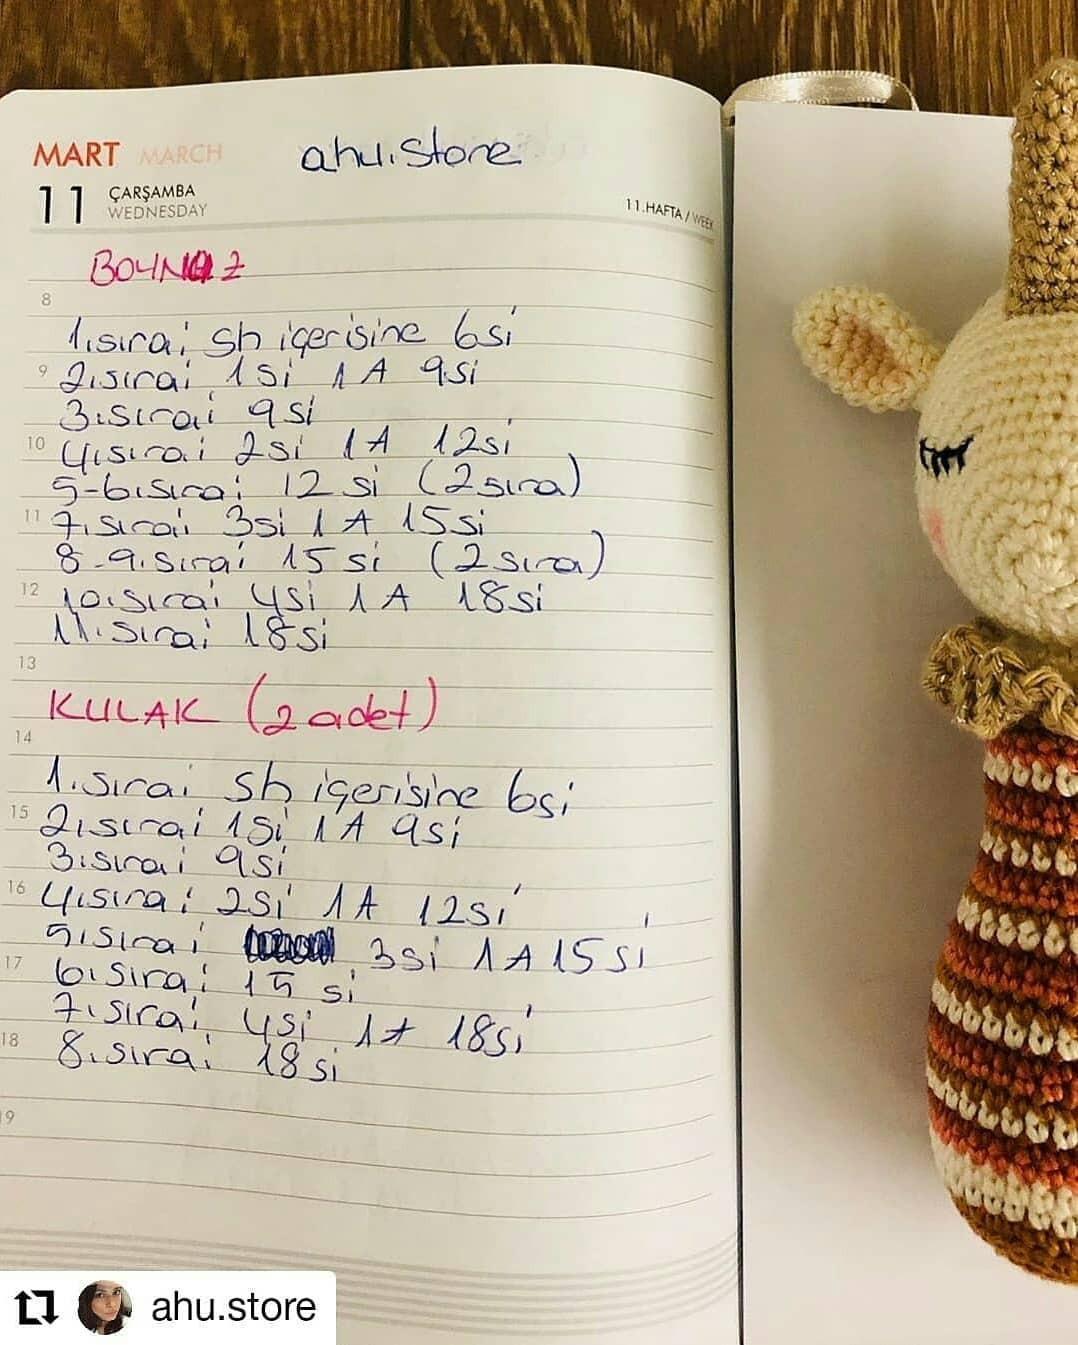 MART MARCH
ahu.store
11 ÇARŞAMBA
WEDNESDAY
11.HAFTA / WEEK
BOYNUZ
8
1.sıra; sh içerisine 6si
9
2.sıra; 1si 1A 9si
3.sıra; 9si
10
4.sıra; 2si 1A 12si
5-6.sıra; 12 si (2sıra)
11
7.sıra; 3si 1A 15si
8-9.sıra; 15 si (2 sıra)
12
10.sıra; 4si 1A 18si
11.sıra; 18si
13
KULAK (2 adet)
14
1.sıra; sh içerisine 6si
15
2.sıra; 1si 1A 9si
3.sıra; 9si
16
4.sıra; 2si 1A 12si
5.sıra; 3si 1A 15 si
17
6.sıra; 15 si
7.sıra; 4si 1A 18si
18
8.sıra; 18si
19
ahu.store